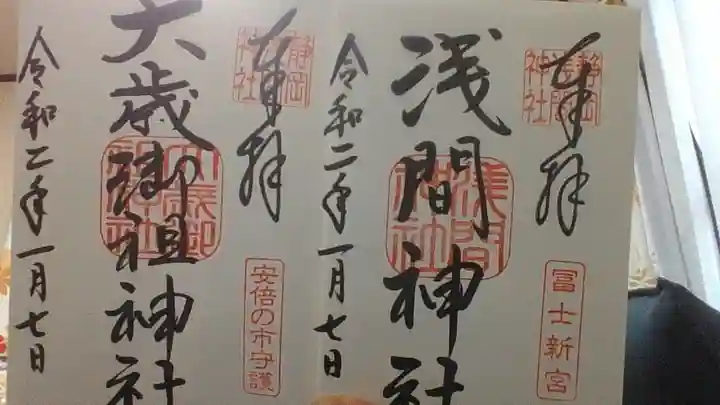 奉拝
静岡
浅間
神社
冨士新宮
浅間神社
浅間
神社
令和二年一月七日
奉拝
静岡
神社
安倍の市守護
大歳御祖神社
大歳御
祖神社
令和二年一月七日